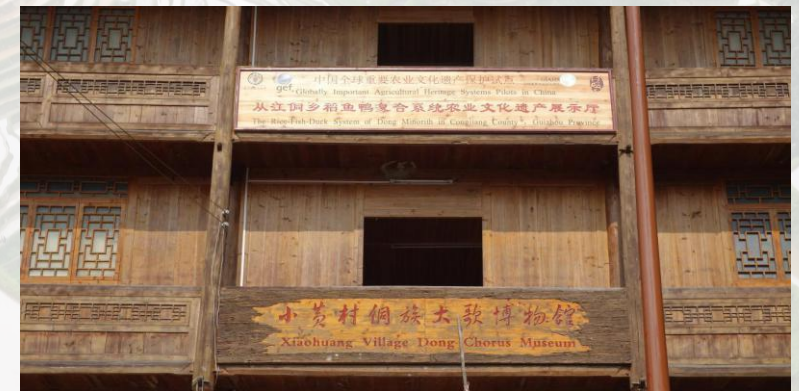 gef
中国全球重要农业文化遗产保护试点
Globally Important Agricultural Heritage Systems Pilots in China
从江侗乡稻鱼鸭复合系统农业文化遗产展示厅
The Rice-Fish-Duck System of Dong Minority in Congjiang County, Guizhou Province
小黄村侗族大歌博物馆
Xiaohuang Village Dong Chorus Museum